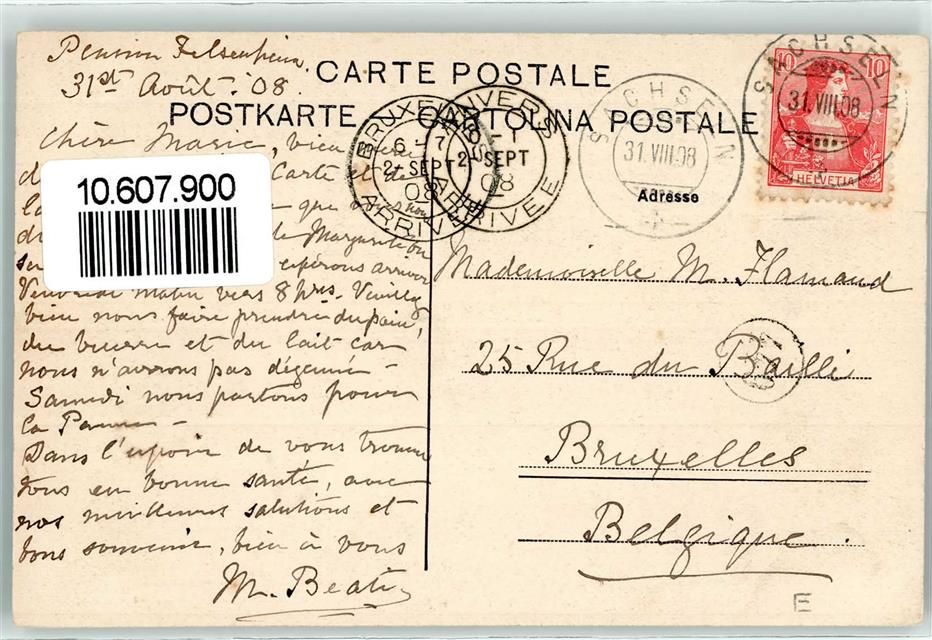 Pension Felsenheim
31st Août. '08.
CARTE POSTALE
POSTKARTE CARTOLINA POSTALE
BRUXELLES
6-7
2 SEPT
08
ARRIVEE
ANVERS
-1
2 SEPT
08
ARRIVEE
SACHSELN
31.VIII.08
SACHSELN
31.VIII.08
10 10
HELVETIA
Adresse
Chère Marie, bien
Carte et
10.607.900
que
de Marguerite
espérons arriver
Vendredi Matin vers 8 hrs. Veuillez
bien nous faire prendre du pain,
du beurre et du lait car
nous n'avons pas déjeuné -
Samedi nous partons pour
la Panne -
Dans l'espoir de vous trouver
tous en bonne santé, avec
nos meilleures salutions et
bons souvenirs, bien à vous
M. Beati
Mademoiselle M. Flamand
25 Rue du Bailli
Bruxelles
Belgique.
E